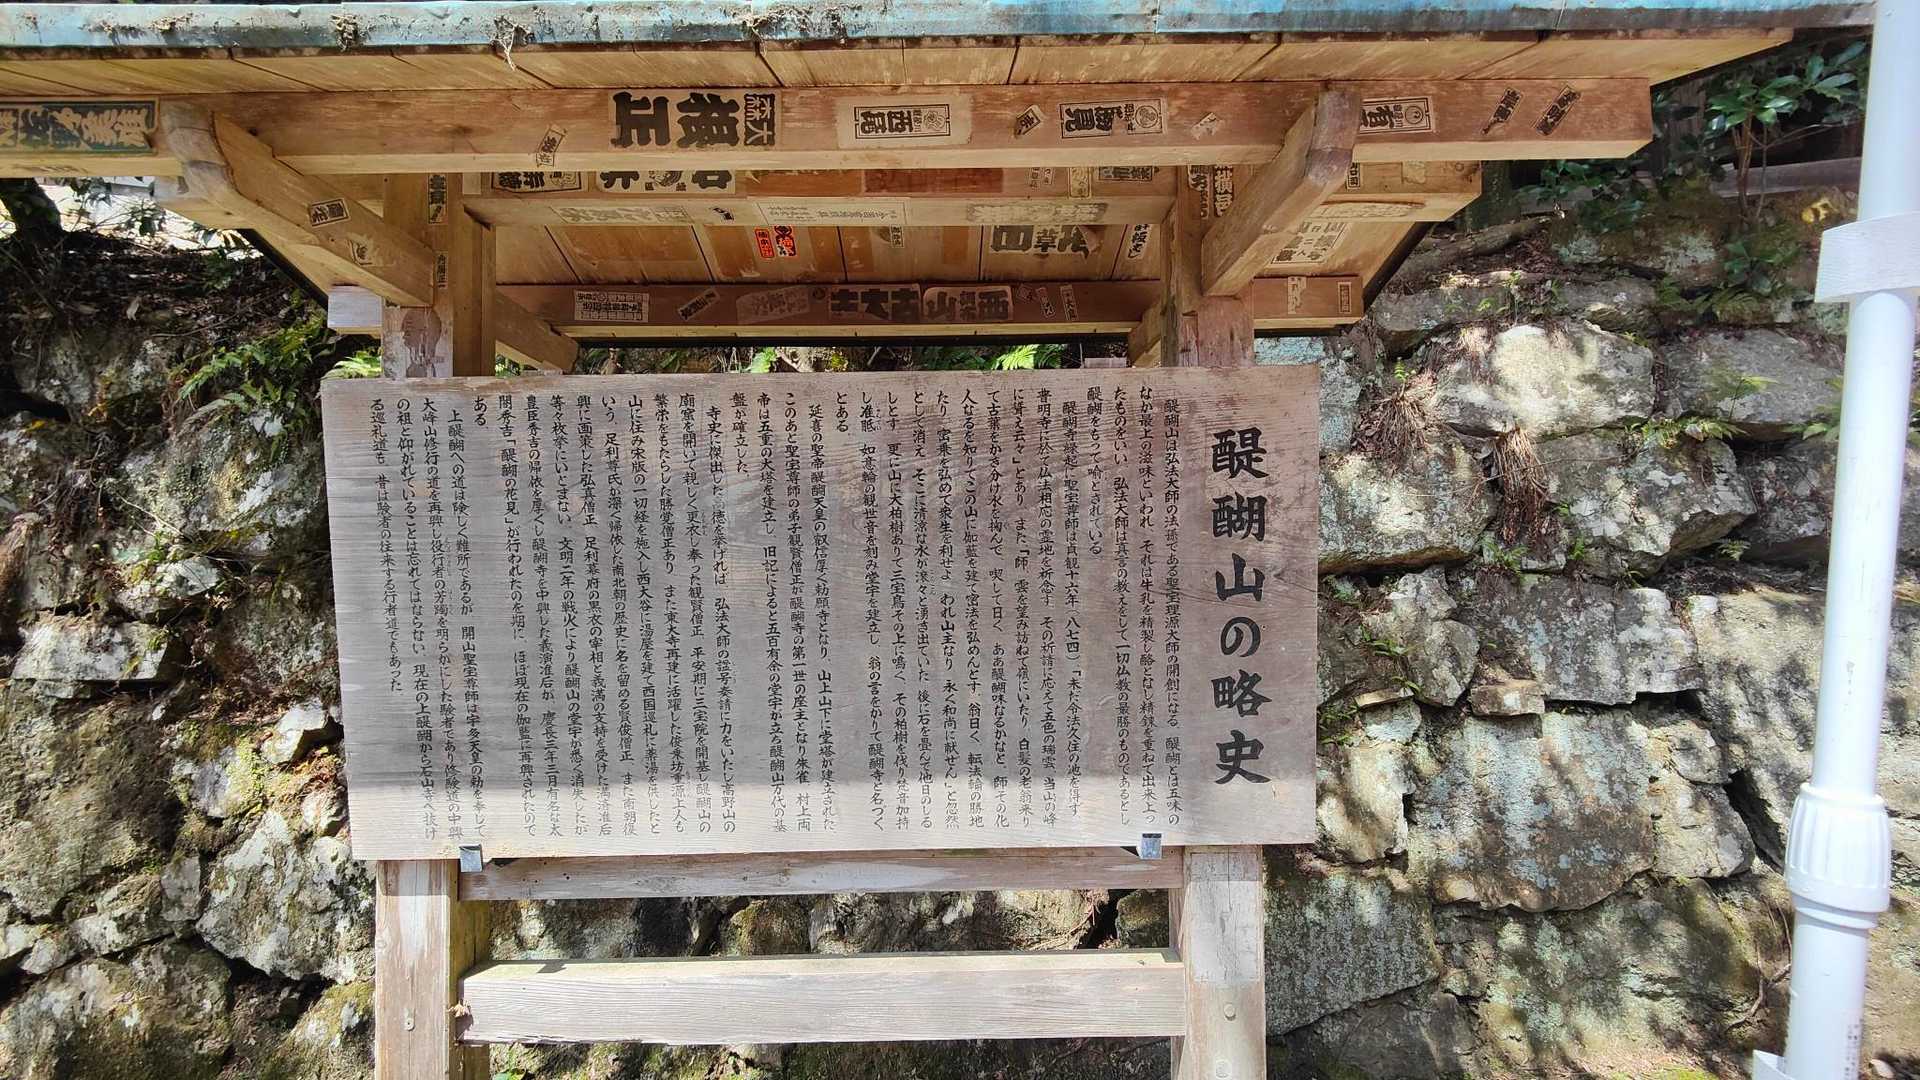 醍醐山の略史
醍醐山は弘法大師の法孫である聖宝理源大師の開創になる 醍醐とは五味の
なか最上の滋味といわれ それは牛乳を精製し酪となし精錬を重ねて出来上っ
たものをいい 弘法大師は真言の教えをして一切仏教の最勝のものであるとし
醍醐をもって喩とされている
醍醐寺縁起に聖宝尊師は貞観十六年(八七四)「未だ令法久住の地を得ず
普明寺に於て仏法相応の霊地を祈念す その祈請に応えて五色の瑞雲 当山の峰
に聳え云々」とあり また「師 雲を望み訪ねて嶺にいたり 白髪の老翁来り
て古葉をかきわけ水を掬んで 喫して曰く ああ醍醐味なるかなと 師その化
人なるを知りてこの山に伽藍を建て密法を弘めんとす 翁曰く 転法輪の勝地
たり 密乗を弘めて衆生を利せよ われ山主なり 永く和尚に献ぜん」と忽然
として消え そこに清涼な水が滾々と湧き出ていた 後に石を畳んで他日のしる
しとす 更に山に大柏樹ありて三宝鳥その上に鳴く その柏樹を伐り梵音加持
し准胝 如意輪の観世音を刻み堂宇を建立し 翁の言をかりて醍醐寺と名づく
とある
延喜の聖帝醍醐天皇の叡信厚く勅願寺となり 山上山下に堂塔が建立された
このあと聖宝尊師の弟子観賢僧正が醍醐寺の第一世の座主となり朱雀 村上両
帝は五重の大塔を建立し 旧記によると五百有余の堂宇が立ち醍醐山万代の基
盤が確立した
寺史に傑出した大徳を挙げれば 弘法大師の諡号奏請に力をいたし高野山の
廟窟を開いて親しく更衣し奉った観賢僧正 平安期に三宝院を開基し醍醐山の
繁栄をもたらした勝覚僧正あり また東大寺再建に活躍した俊乗坊重源上人も
山に住み宋版の一切経を施入し西大谷に湯屋を建て西国巡礼に薬湯を供したと
いう 足利尊氏が深く帰依した南北朝の歴史に名を留める賢俊僧正 また南朝復
興に画策した弘真僧正 足利幕府の黒衣の宰相と義満の支持を受けた満済准后
等々枚挙にいとまない 文明二年の戦火により醍醐山の堂宇が悉く消失したが
豊臣秀吉の帰依を厚くし醍醐寺を中興した義演准后が 慶長三年三月有名な太
閤秀吉「醍醐の花見」が行われたのを期に ほぼ現在の伽藍に再興されたので
ある
上醍醐への道は険しく難所であるが 開山聖宝尊師は宇多天皇の勅を奉じて
大峰山修行の道を再興し役行者の芳躅を明らかにした験者であり修験道の中興
の祖と仰がれていることは忘れてはならない 現在の上醍醐から石山寺へ抜け
る巡礼道も 昔は験者の往来する行者道でもあった